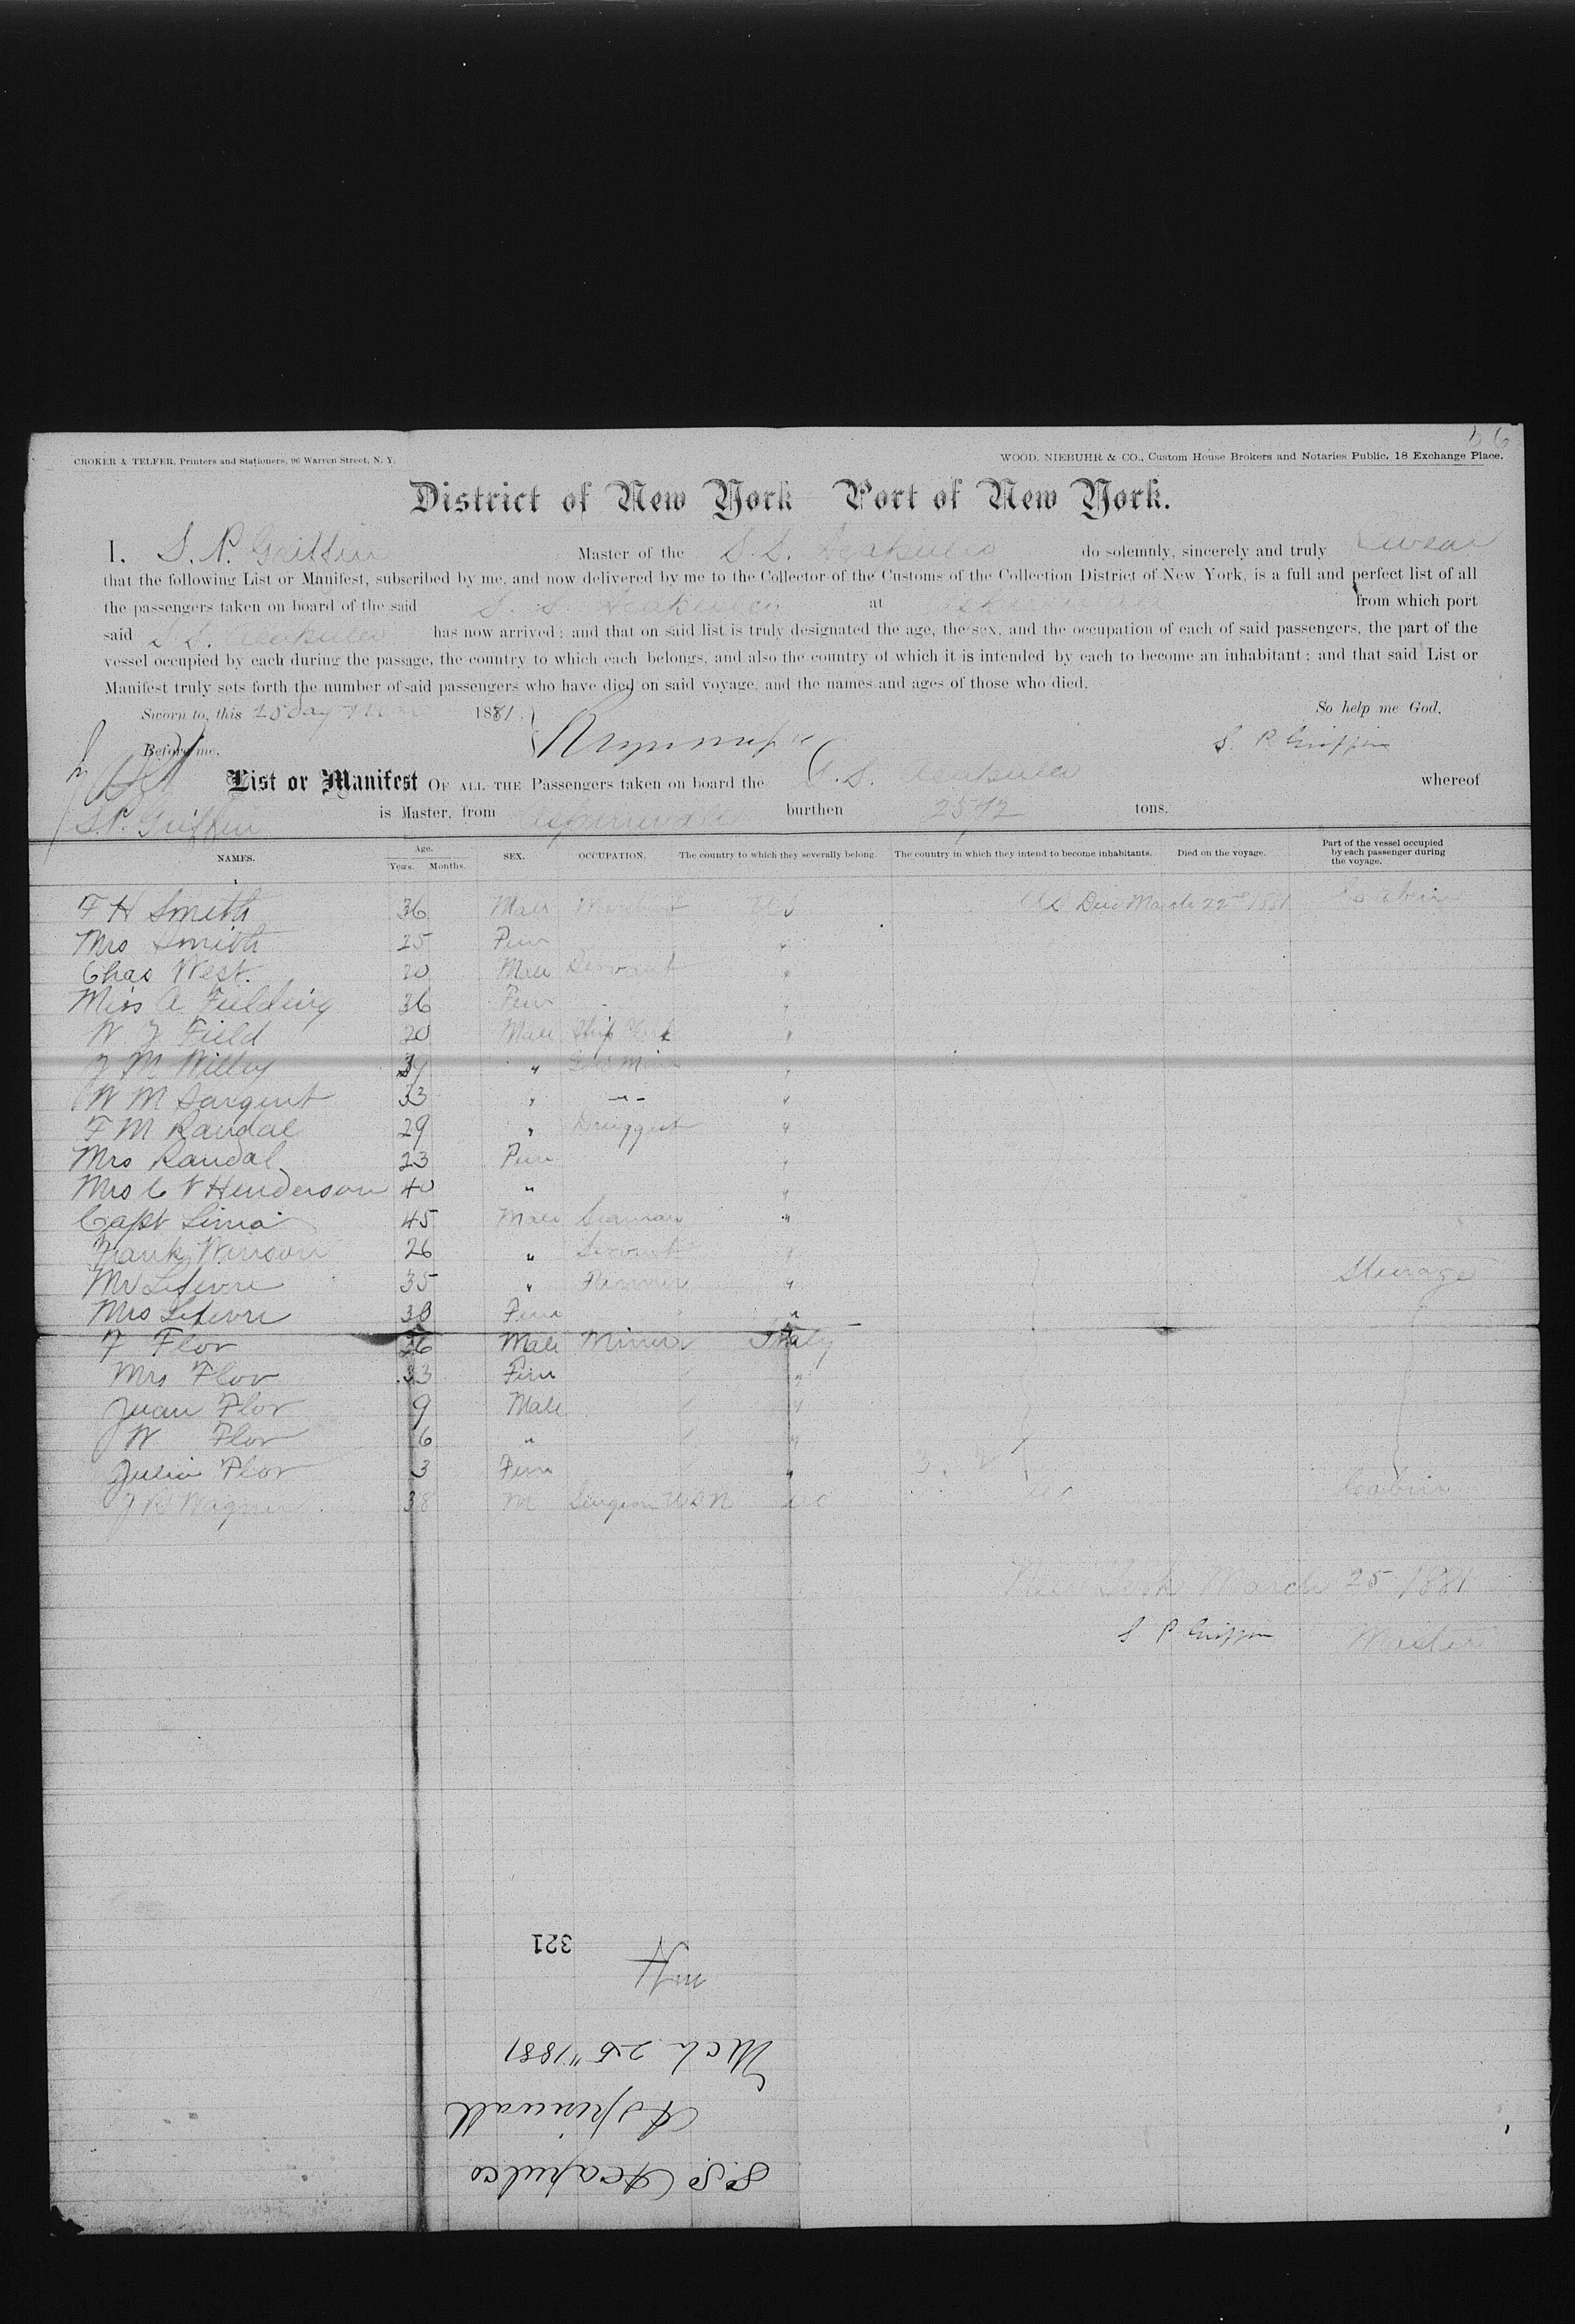 66
CROKER & TELFER, Printers and Stationers, 96 Warren Street, N. Y.
WOOD, NIEBUHR & CO., Custom House Brokers and Notaries Public, 18 Exchange Place.
District of New York Port of New York.
I, S. P. Griffin Master of the S. S. Acapulco do solemnly, sincerely and truly swear
that the following List or Manifest, subscribed by me, and now delivered by me to the Collector of the Customs of the Collection District of New York, is a full and perfect list of all
the passengers taken on board of the said S. S. Acapulco at Aspinwall from which port
said S. S. Acapulco has now arrived; and that on said list is truly designated the age, the sex, and the occupation of each of said passengers, the part of the
vessel occupied by each during the passage, the country to which each belongs, and also the country of which it is intended by each to become an inhabitant; and that said List or
Manifest truly sets forth the number of said passengers who have died on said voyage, and the names and ages of those who died.
Sworn to, this 25 day March 1881. So help me God,
Before me, S. P. Griffin
List or Manifest OF ALL THE Passengers taken on board the S. S. Acapulco whereof
S. P. Griffin is Master, from Aspinwall burthen 2572 tons.
NAMES. Age. Years. Months. SEX. OCCUPATION. The country to which they severally belong. The country in which they intend to become inhabitants. Died on the voyage. Part of the vessel occupied by each passenger during the voyage.
F H Smith 36 Male Merchant US US Died March 22nd 1881 Cabin
Mrs Smith 25 Fem "
Chas West. 20 Male Servant "
Miss A Fielding 36 Fem "
W J Field 20 Male Ship Clerk "
J M Willey 39 " Gold Miner "
W M Sargent 33 " -"- "
F M Randal 29 " Druggist "
Mrs Randal 23 Fem "
Mrs C V Henderson 40 " "
Capt Lima 45 Male Seaman "
Frank Winson 26 " Servant "
Mr Lefevre 35 " Farmer " Steerage
Mrs Lefevre 38 Fem "
F Flor 36 Male Miner Italy
Mrs Flor 33 Fem "
Juan Flor 9 Male "
W Flor 6 " "
Julia Flor 3 Fem "
J R Wagner 38 M Surgeon USN US US Cabin
New York March 25 1881
S P Griffin Master
321
Mch 25" 1881
Aspinwall
S.S. Acapulco